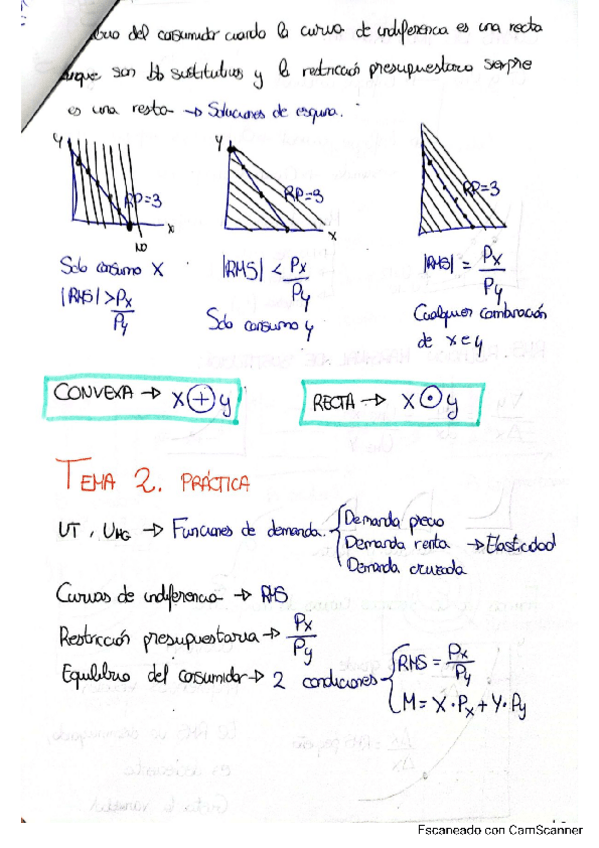 del consumidor cuando la curva de indiferencia es una recta
son bb sustitutivos y la restricción presupuestaria siempre
es una resta → Soluciones de esquina.
y
RP=3
x
NO
Solo consumo X
|RMS| > Px/Py
y
RP=3
x
|RMS| < Px/Py
Solo consumo y
RP=3
|RMS| = Px/Py
Cualquier combinación
de x e y
CONVEXA → x ⊕ y
RECTA → x ⊙ y
TEMA 2. PRÁCTICA
UT, UMG → Funciones de demanda.
Demanda precio
Demanda renta → Elasticidad
Demanda cruzada
Curvas de indiferencia → RMS
Restricción presupuestaria → Px/Py
Equilibrio del consumidor → 2 condiciones
RMS = Px/Py
M = X·Px + Y·Py
Escaneado con CamScanner